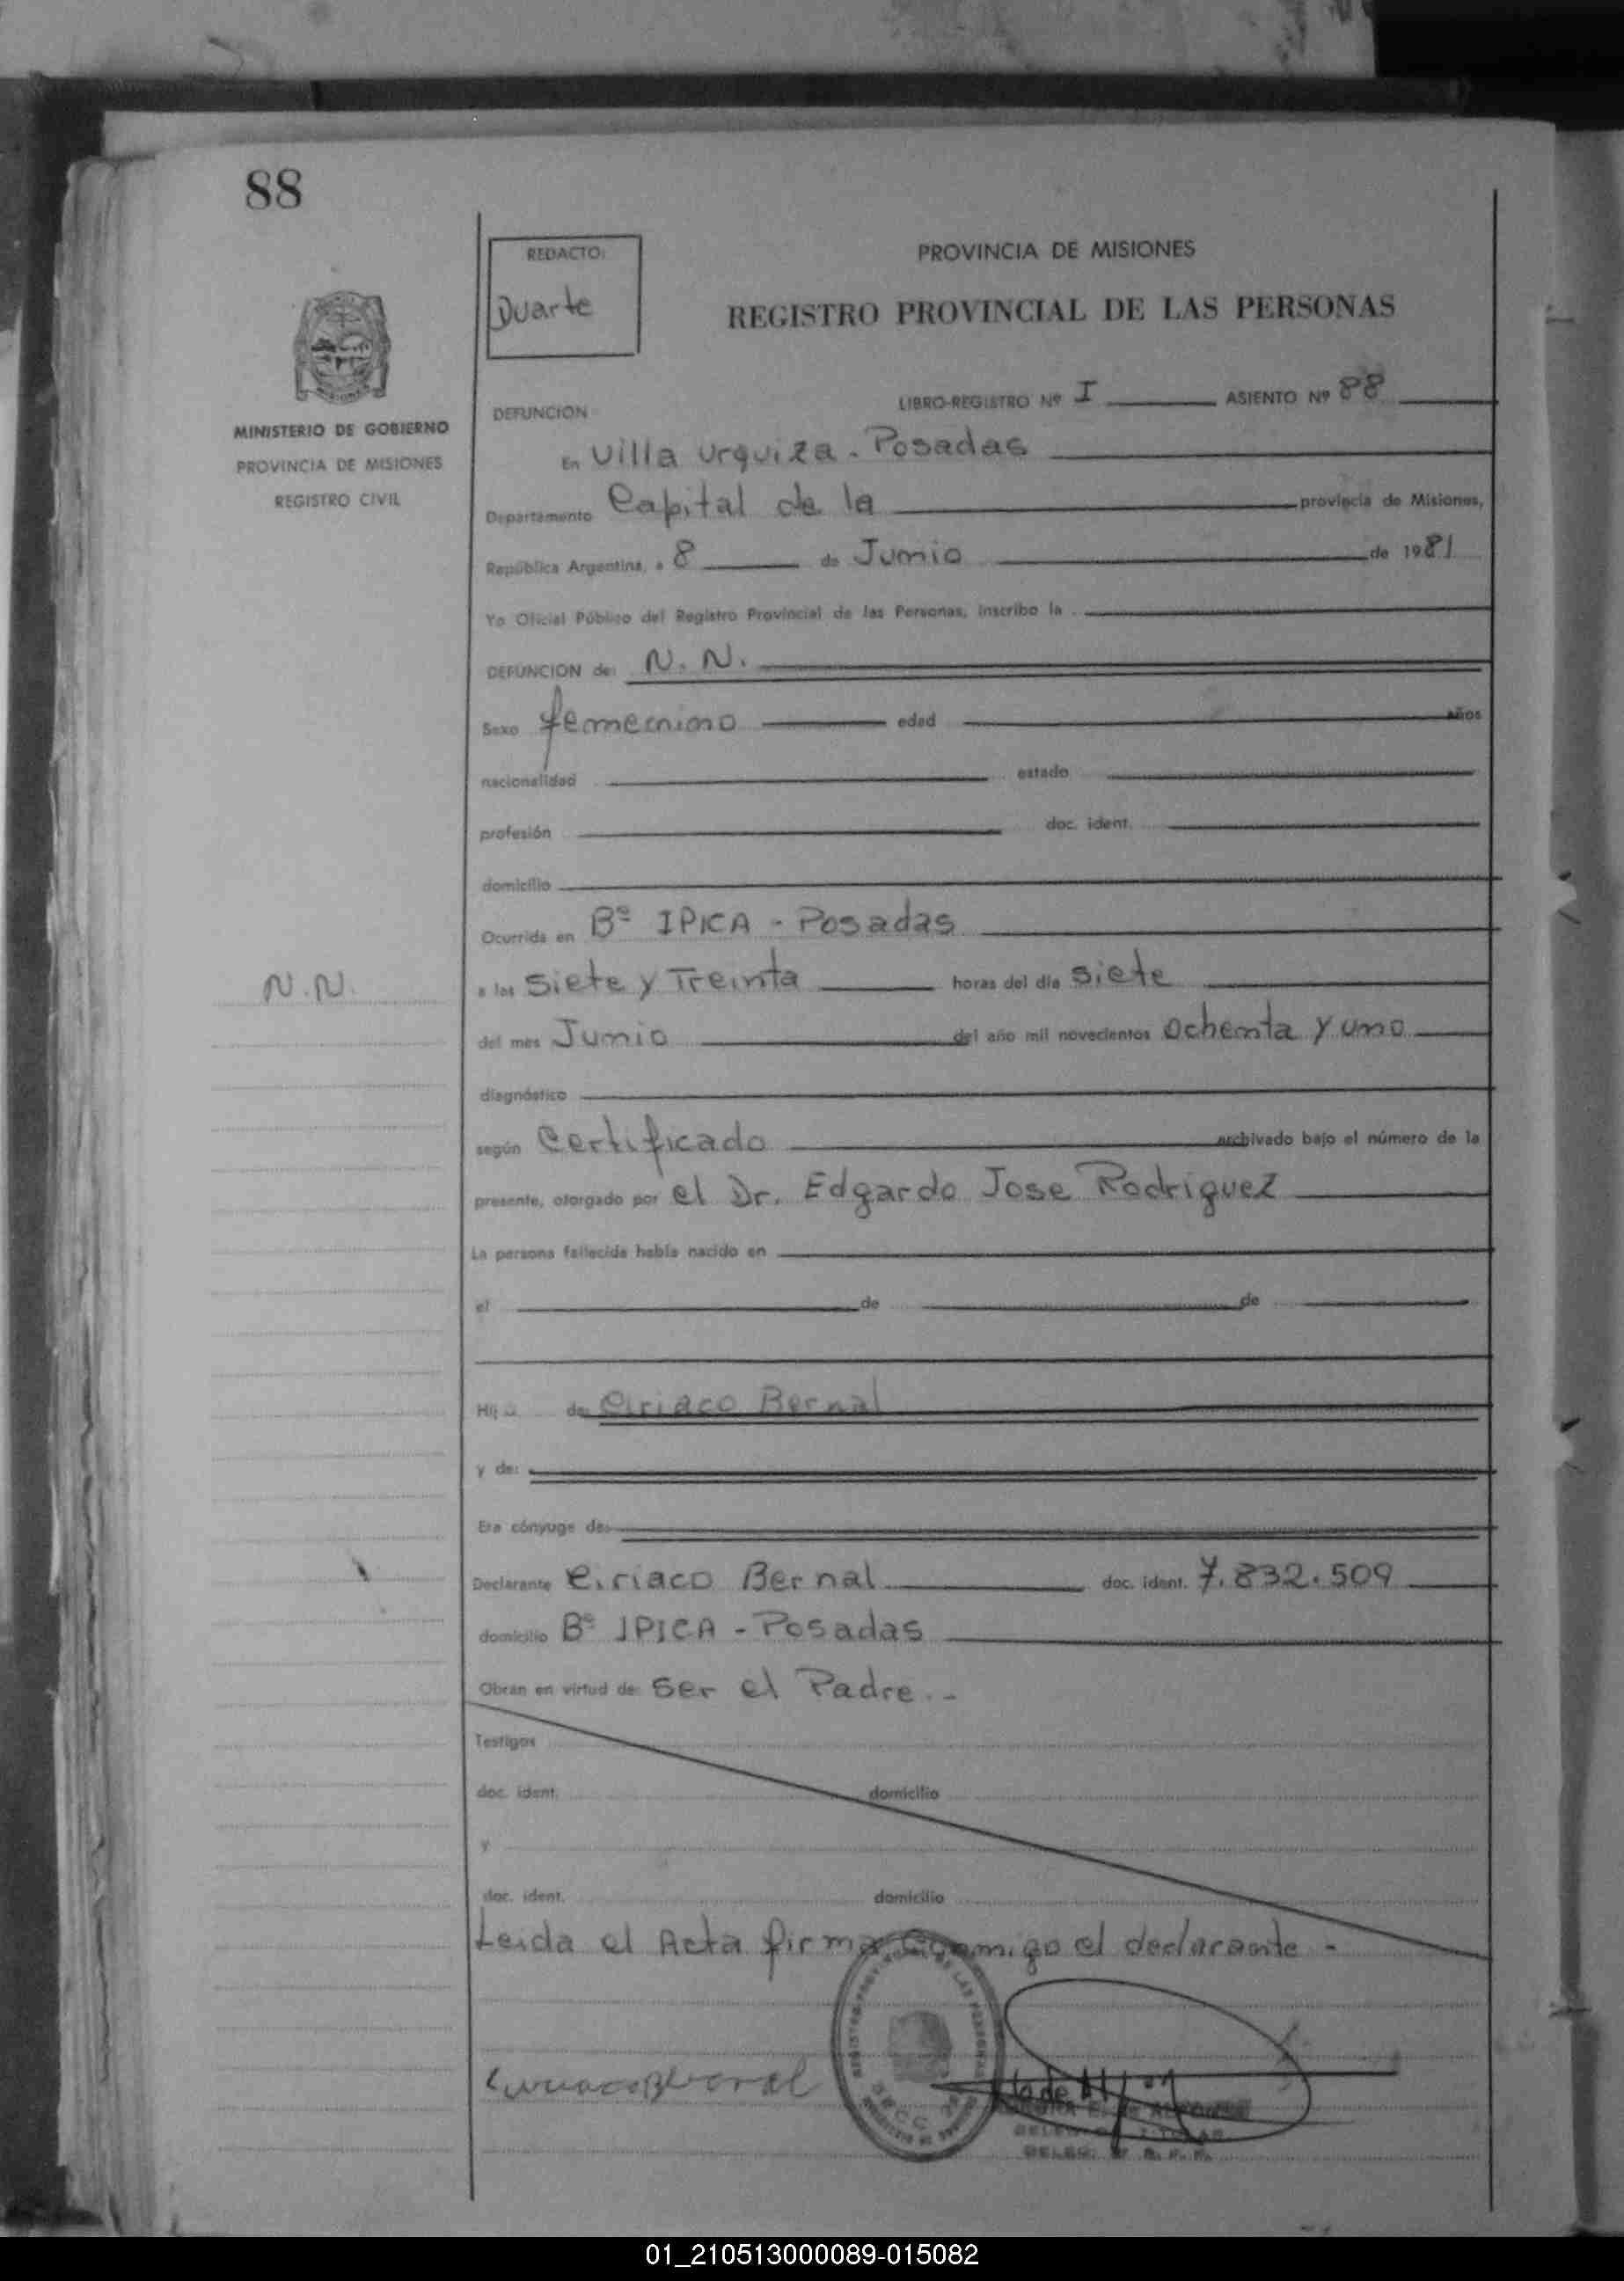 88
REDACTO:
Duarte
PROVINCIA DE MISIONES
REGISTRO PROVINCIAL DE LAS PERSONAS
MINISTERIO DE GOBIERNO
PROVINCIA DE MISIONES
REGISTRO CIVIL
LIBRO-REGISTRO Nº I ASIENTO Nº 88
DEFUNCION
En Villa Urquiza - Posadas
Departamento Capital de la provincia de Misiones,
República Argentina, a 8 de Junio de 1981
Yo Oficial Público del Registro Provincial de las Personas, inscribo la
DEFUNCION de: N. N.
Sexo femenino edad años
nacionalidad estado
profesión doc. ident.
domicilio
Ocurrida en Bº IPICA - Posadas
N.N.
a las Siete y Treinta horas del día siete
del mes Junio del año mil novecientos ochenta y uno
diagnóstico
según Certificado archivado bajo el número de la
presente, otorgado por el Dr. Edgardo Jose Rodriguez
La persona fallecida había nacido en
el de de
Hija de: Ciriaco Bernal
y de:
Era cónyuge de:
Declarante Ciriaco Bernal doc. ident. 7.832.509
domicilio Bº IPICA - Posadas
Obran en virtud de: Ser el Padre. -
Testigos
doc. ident. domicilio
y
doc. ident. domicilio
Leida el Acta firma Conmigo el declarante -
01_210513000089-015082